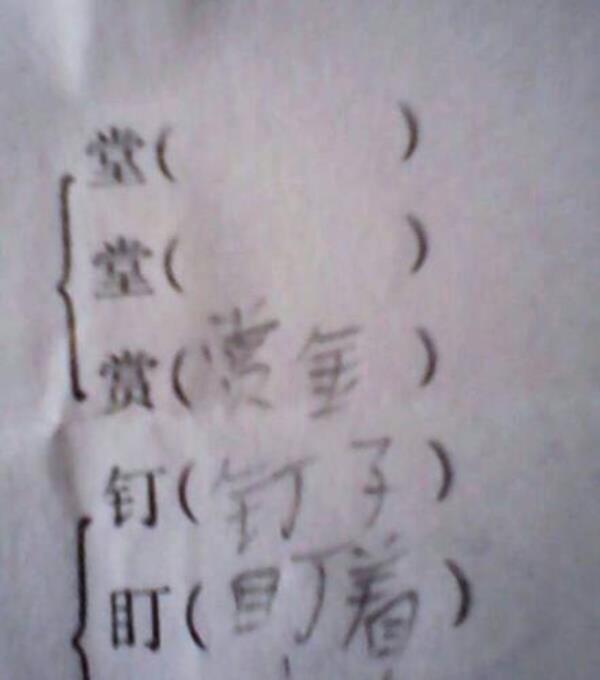 堂（ ）
堂（ ）
赏（赏金）
钉（钉子）
盯（盯着）